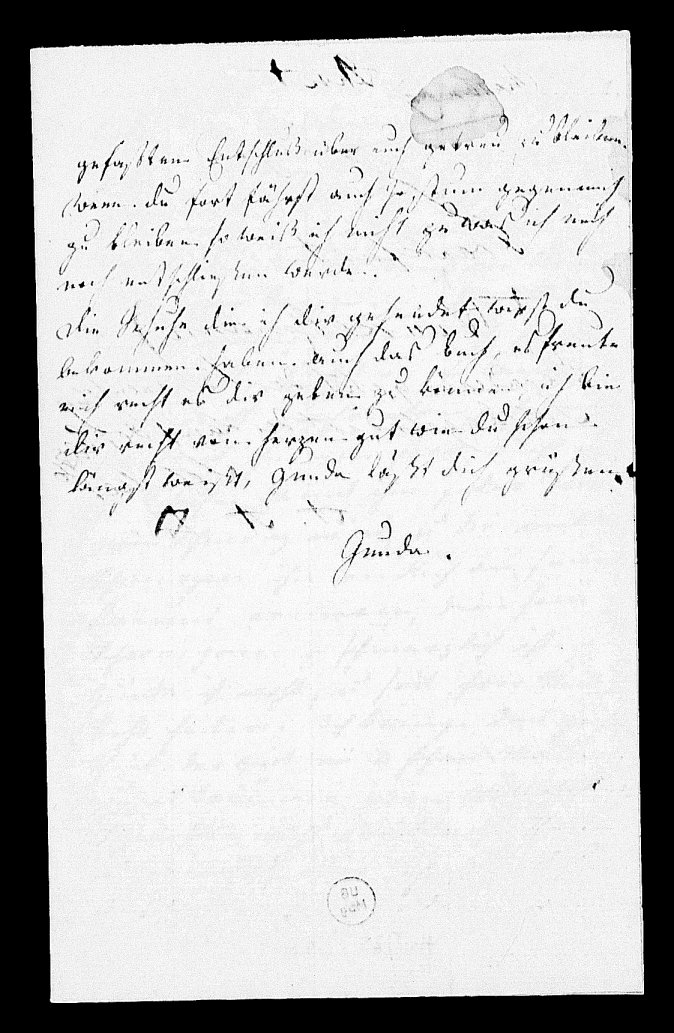 gefassten Entschluß über euch getreu zu bleiben.
wenn du fort fährst auch so stum gegen mich
zu bleiben so weiß ich nicht zu was ich mich
noch entschliessen werde.
die Schuhe die ich dir gesendet wirst du
bekommen haben. auch das buch, es freute
mich recht es dir geben zu können, ich bin
dir recht von herzen gut wie du schon
längst weißt, Gunda läßt dich grüssen.
Gunda.